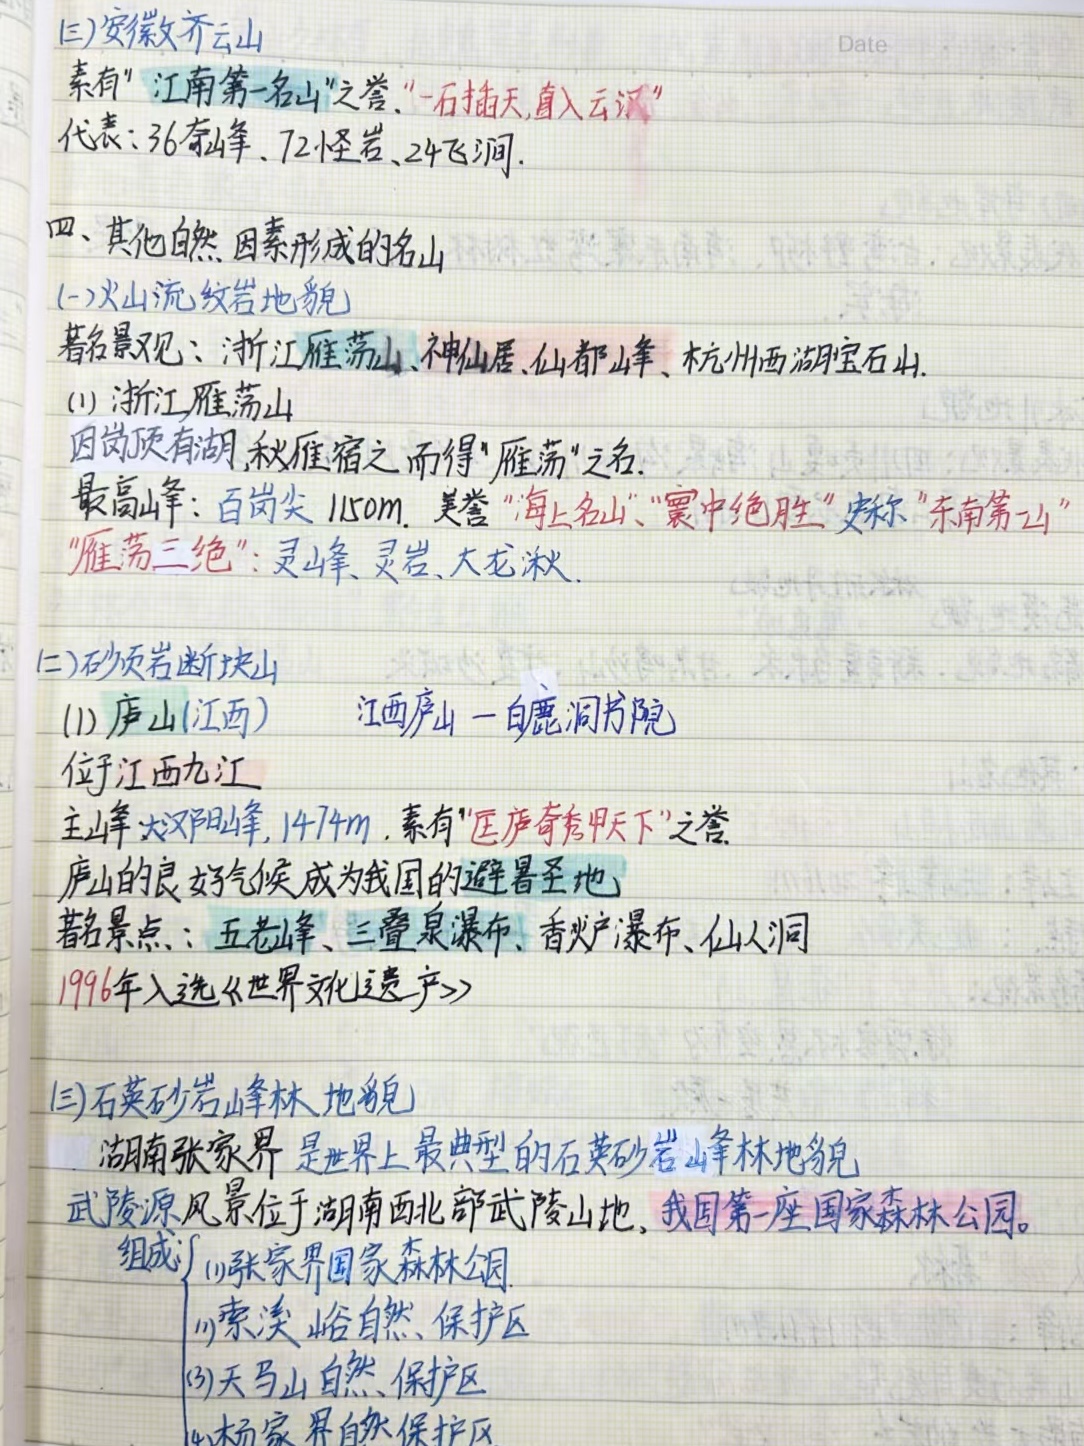 Date
(三)安徽齐云山
素有"江南第一名山"之誉、"一石插天,直入云汉"
代表:36奇峰、72怪岩、24飞涧.
四、其他自然因素形成的名山
(一)火山流纹岩地貌
著名景观:浙江雁荡山、神仙居、仙都峰、杭州西湖宝石山.
(1)浙江雁荡山
因岗顶有湖,秋雁宿之而得"雁荡"之名.
最高峰:百岗尖 1150m. 美誉"海上名山"、"寰中绝胜"史称"东南第一山"
"雁荡三绝":灵峰、灵岩、大龙湫.
(二)砂页岩断块山
(1)庐山(江西) 江西庐山—白鹿洞书院
位于江西九江
主峰:大汉阳峰,1474m.素有"匡庐奇秀甲天下"之誉.
庐山的良好气候成为我国的避暑圣地
著名景点:五老峰、三叠泉瀑布、香炉瀑布、仙人洞
1996年入选《世界文化遗产》
(三)石英砂岩峰林地貌
湖南张家界是世界上最典型的石英砂岩峰林地貌
武陵源风景位于湖南西北部武陵山地、我国第一座国家森林公园。
组成:(1)张家界国家森林公园.
(1)索溪峪自然保护区
(3)天马山自然保护区
(4)杨家界自然保护区